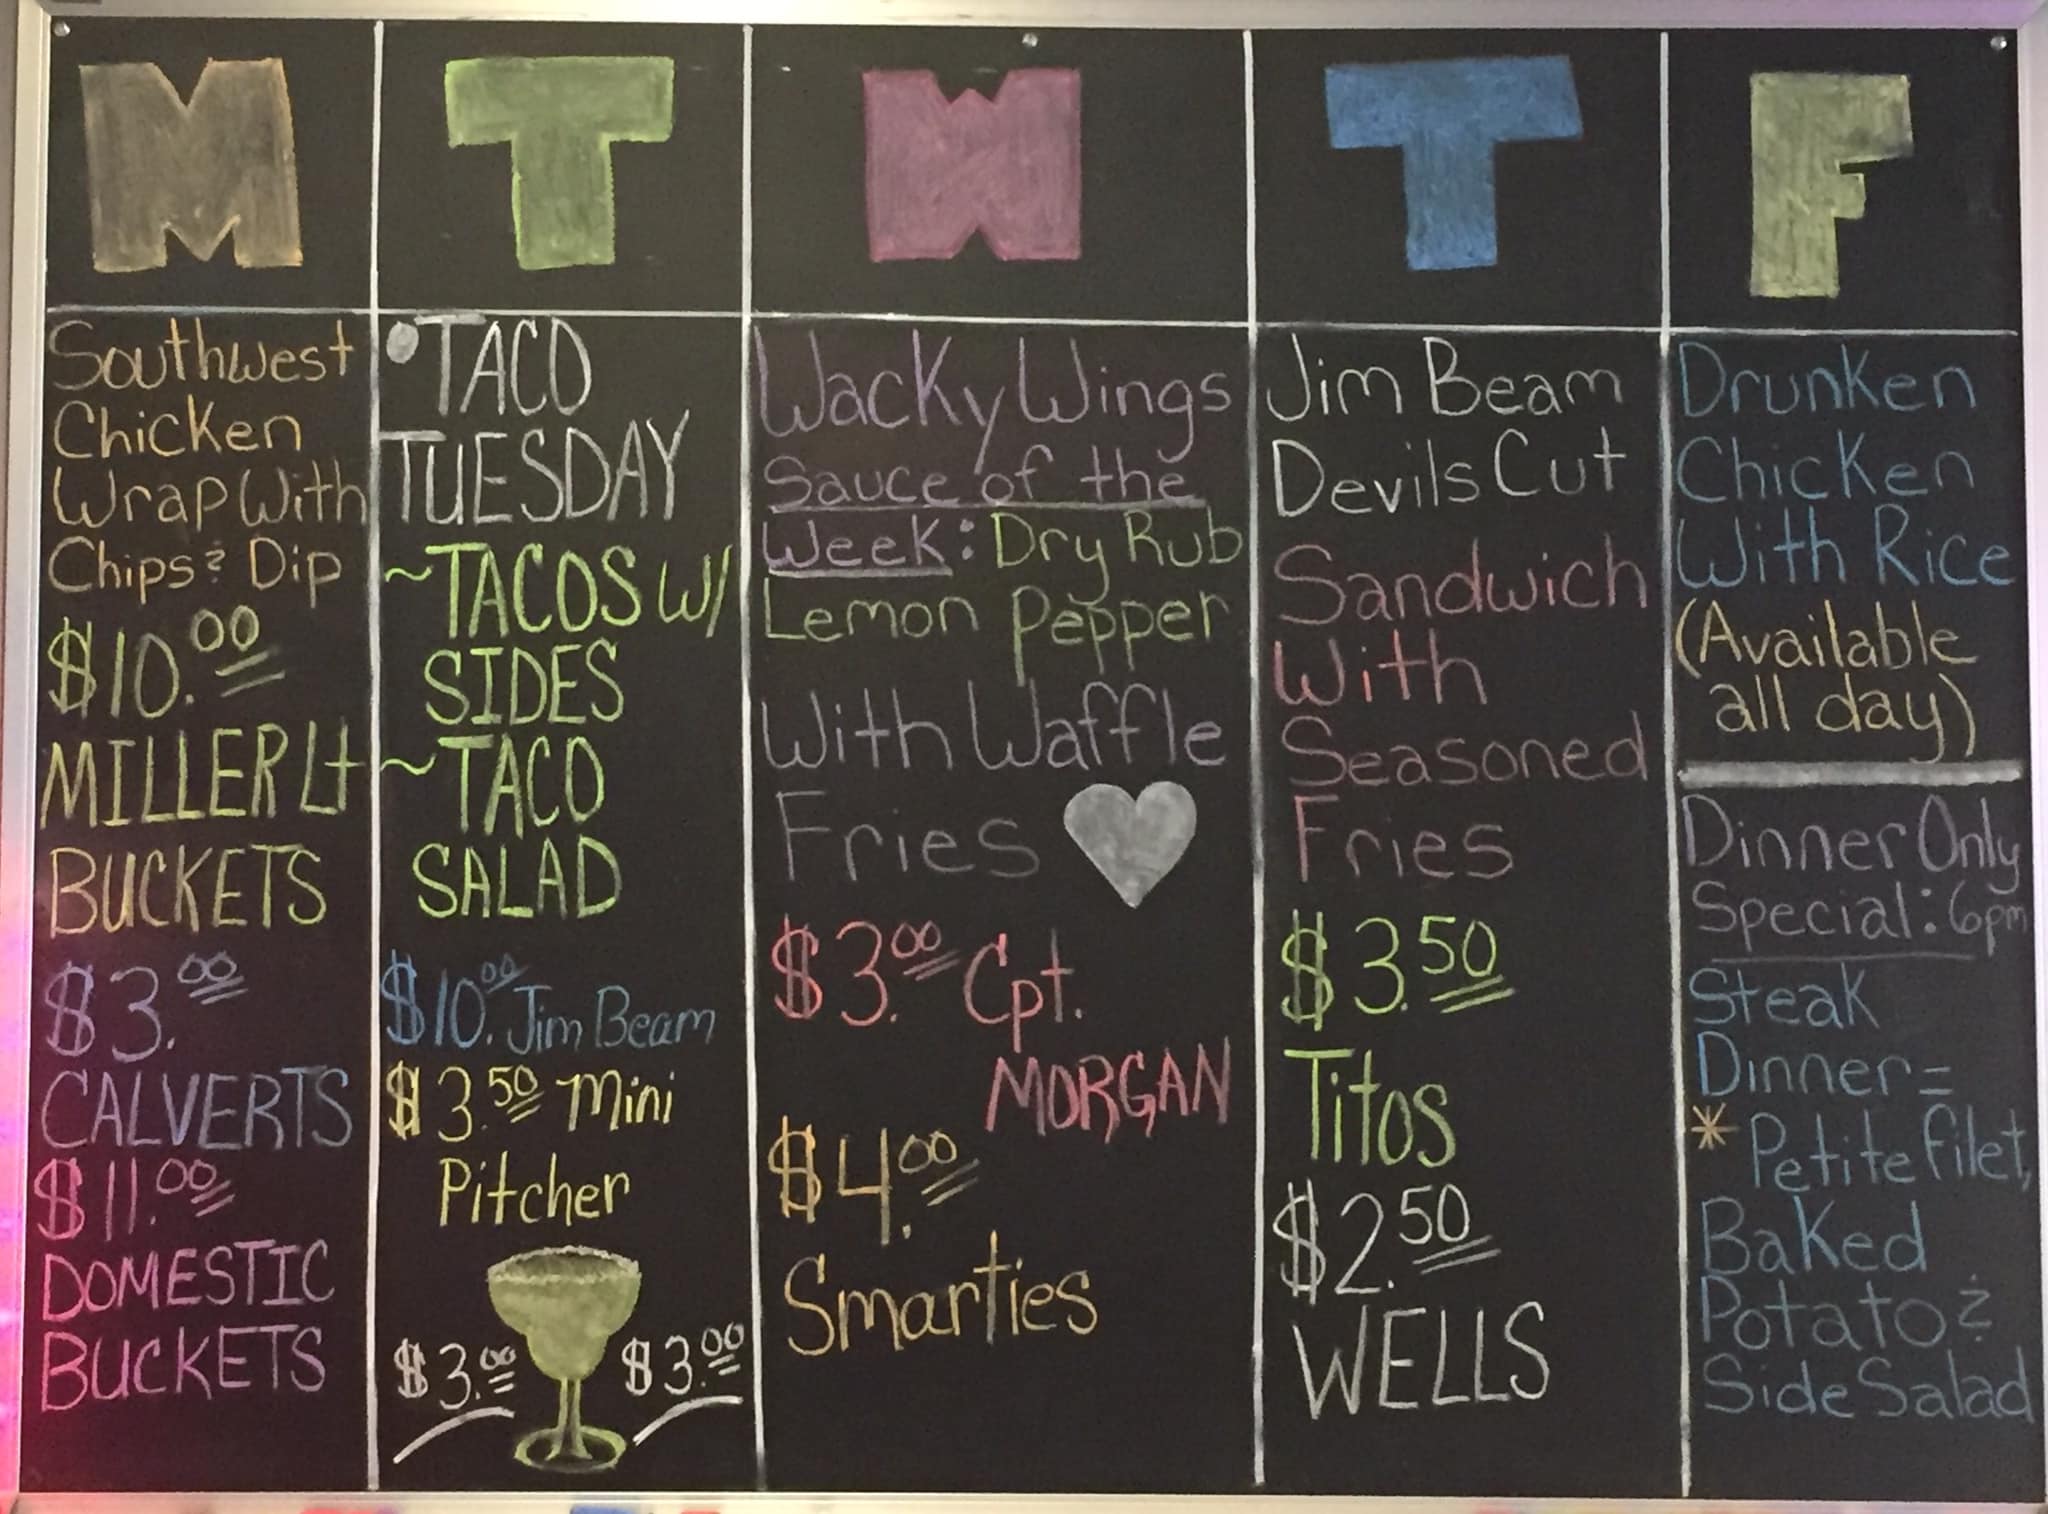 M
Southwest
Chicken
Wrap With
Chips & Dip
$10.00
MILLER Lt
BUCKETS
$3.00
CALVERTS
$11.00
DOMESTIC
BUCKETS
T
•TACO
TUESDAY
~TACOS W/
SIDES
~TACO
SALAD
$10.00 Jim Beam
$3.50 Mini
Pitcher
$3.00 $3.00
W
Wacky Wings
Sauce of the
Week: Dry Rub
Lemon Pepper
With Waffle
Fries
$3.00 Cpt.
MORGAN
$4.00
Smarties
T
Jim Beam
Devils Cut
Sandwich
With
Seasoned
Fries
$3.50
Titos
$2.50
WELLS
F
Drunken
Chicken
With Rice
(Available
all day)
Dinner Only
Special: 6pm
Steak
Dinner =
* Petite filet,
Baked
Potato &
Side Salad